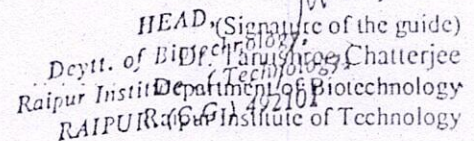 HEAD,
(Signature of the guide)
Dr. Tanushree Chatterjee
Department of Biotechnology
Raipur Institute of Technology
Deptt. of Biotechnology,
Raipur Institute
RAIPUR (C.G.) 492101